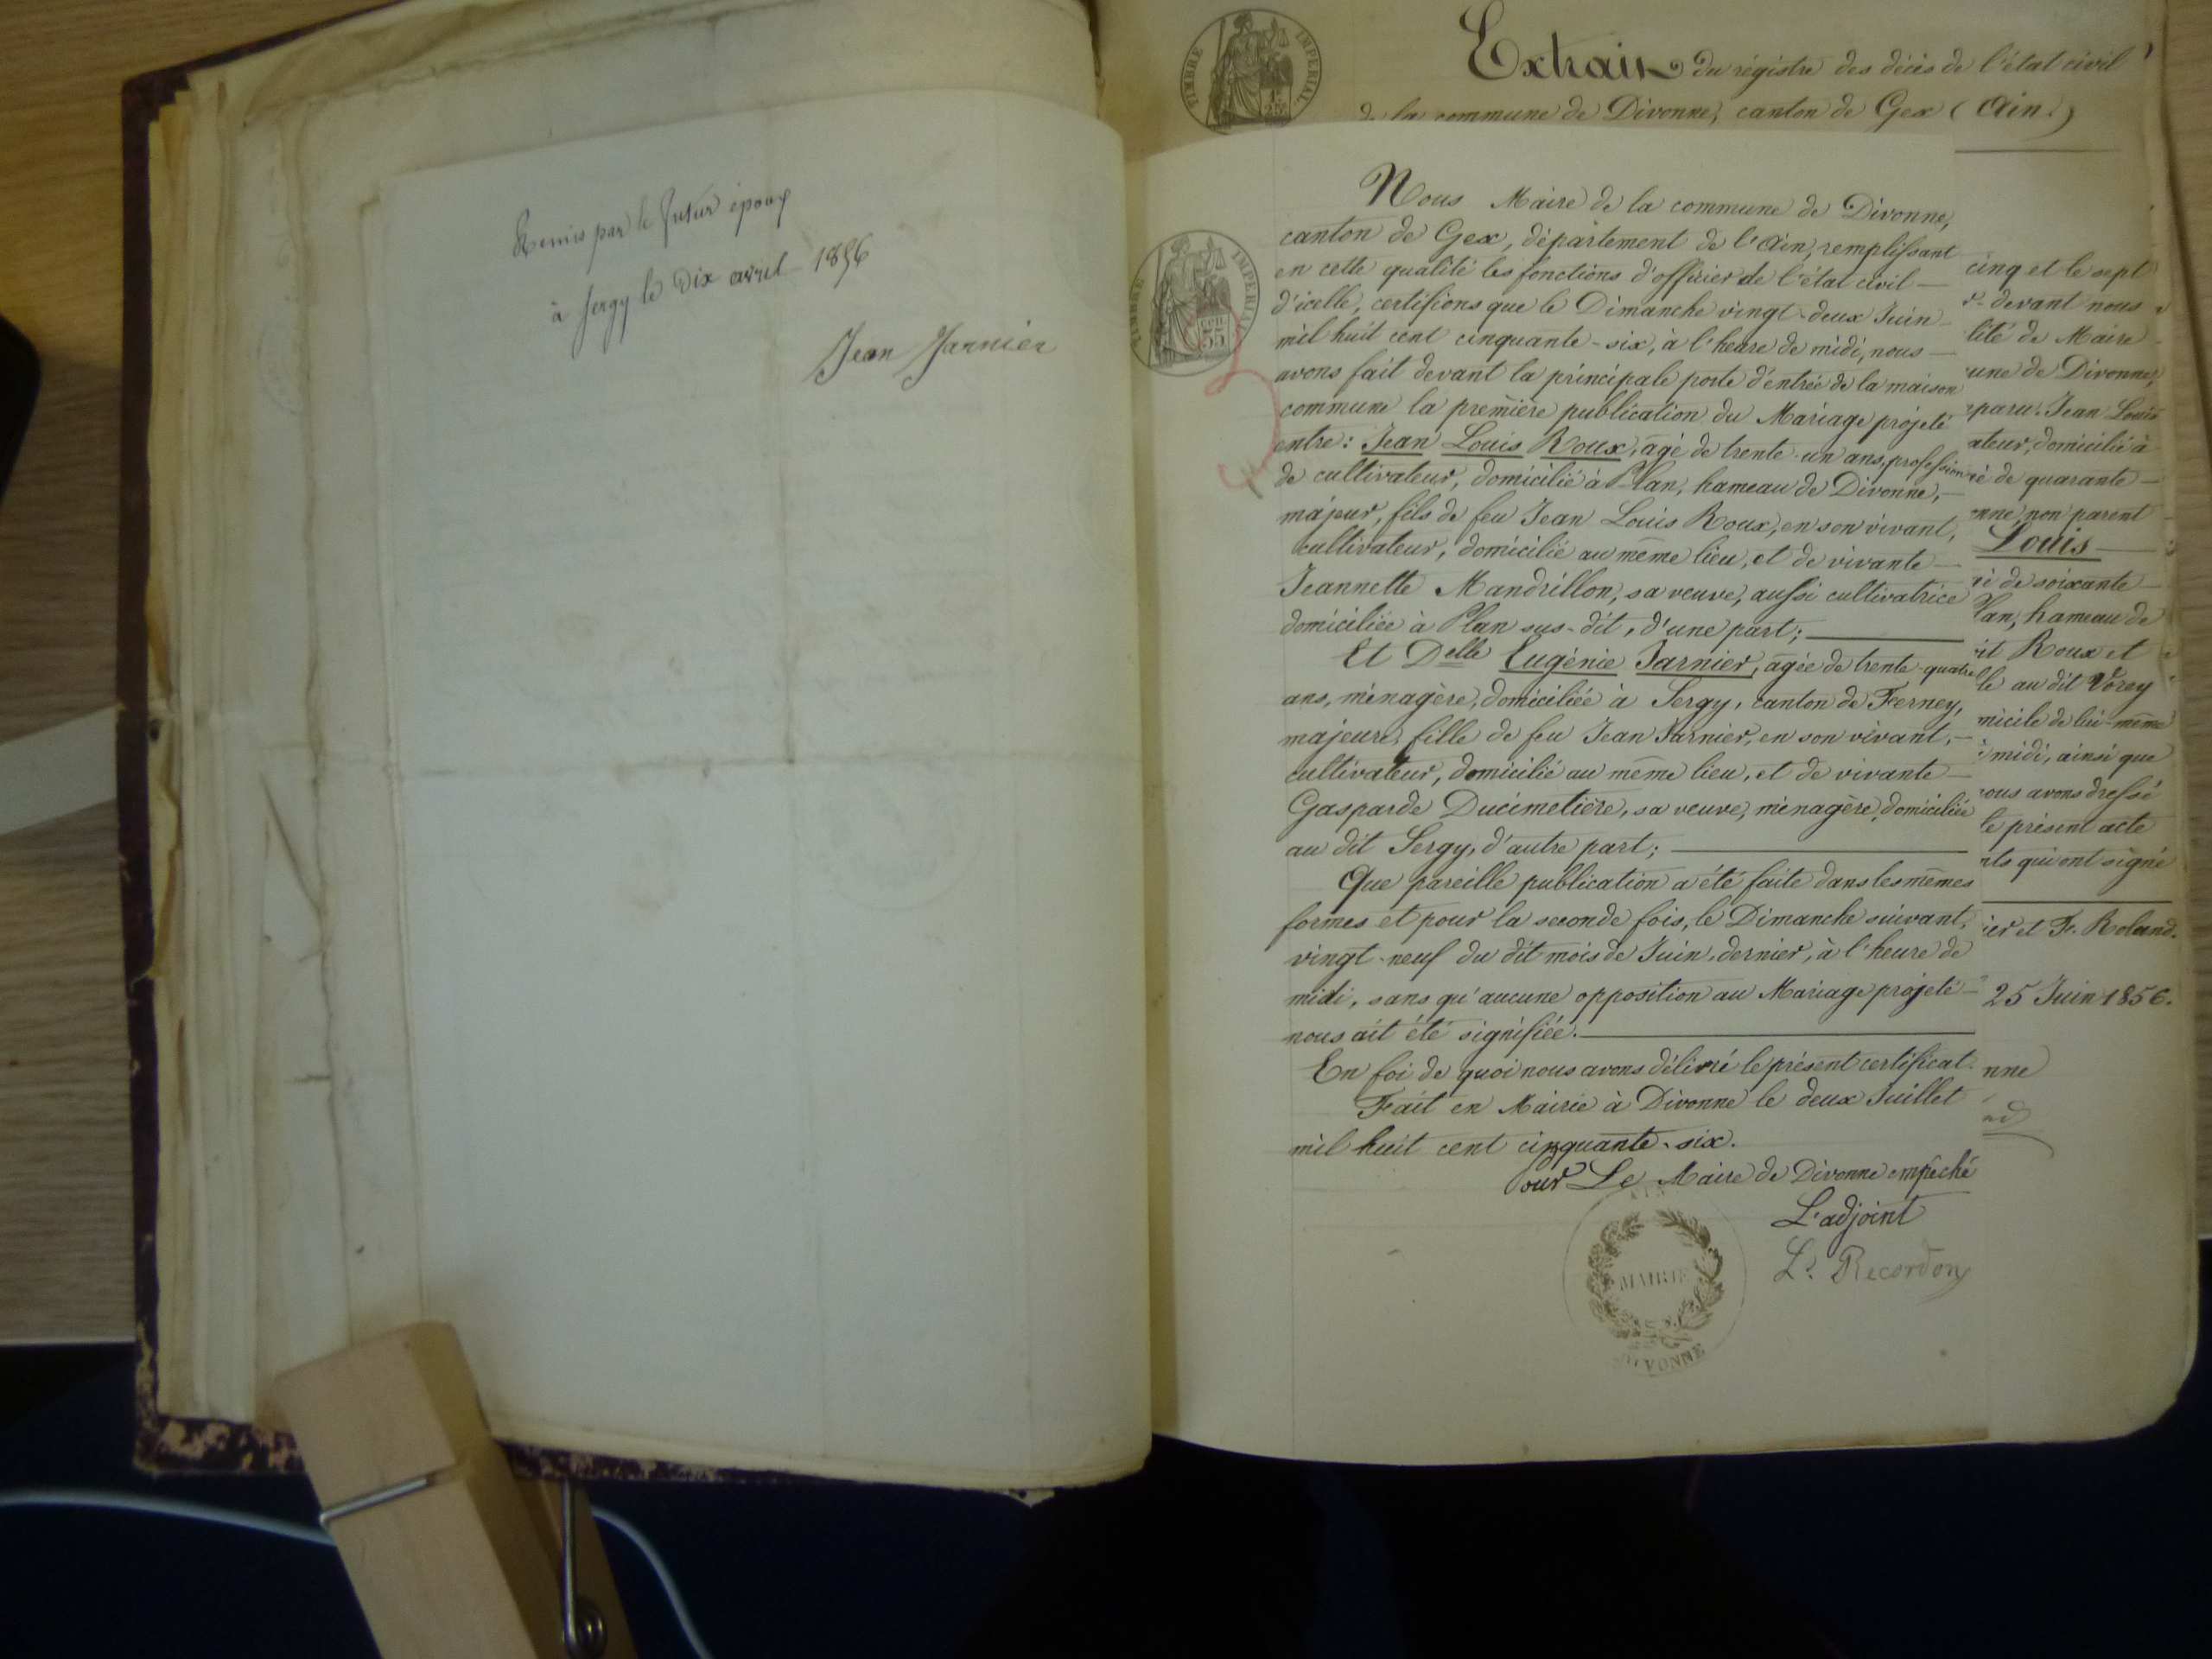 Remis par le futur époux
à Sergy le dix avril 1856
Jean Jarnier
TIMBRE IMPERIAL
1F 25C
Extrait du régistre des décès de l'état civil
de la commune de Divonne, canton de Gex (Ain.)
TIMBRE IMPERIAL
CEN. 35
Nous Maire de la commune de Divonne,
canton de Gex, département de l'Ain, remplissant
en cette qualité les fonctions d'officier de l'état civil
d'icelle, certifions que le Dimanche vingt-deux Juin
mil huit cent cinquante-six, à l'heure de midi, nous
avons fait devant la principale porte d'entrée de la maison
commune la première publication du Mariage projeté
entre: Jean Louis Roux, âgé de trente-un ans, profession
de cultivateur, domicilié à Plan, hameau de Divonne,
majeur, fils de feu Jean Louis Roux, en son vivant,
cultivateur, domicilié au même lieu, et de vivante
Jeannette Mandrillon, sa veuve, aussi cultivatrice
domiciliée à Plan sus-dit, d'une part;
Et Delle Eugénie Jarnier, âgée de trente-quatre
ans, ménagère, domiciliée à Sergy, canton de Ferney,
majeure, fille de feu Jean Jarnier, en son vivant,
cultivateur, domicilié au même lieu, et de vivante
Gasparde Ducimetière, sa veuve, ménagère, domiciliée
au dit Sergy, d'autre part;
Que pareille publication a été faite dans les mêmes
formes et pour la seconde fois, le Dimanche suivant,
vingt-neuf du dit mois de Juin, dernier, à l'heure de
midi, sans qu'aucune opposition au Mariage projeté
nous ait été signifiée.
En foi de quoi nous avons délivré le présent certificat.
Fait en Mairie à Divonne le deux Juillet
mil huit cent cinquante-six.
Pour Le Maire de Divonne empêché
L'adjoint
Ls Recordon
MAIRIE
DIVONNE
cinq et le sept
devant nous
lité de Maire
une de Divonne,
paru Jean Louis
ateur, domicilié à
é de quarante
nne, non parent
Louis
é de soixante
lan, hameau de
it Roux et
le au dit Vorey
micile de lui-même
midi, ainsi que
ous avons dressé
le présent acte
nts qui ont signé
ier et F. Roland.
25 Juin 1856.
nne